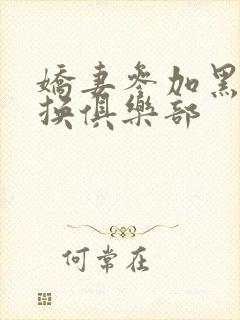 嬌妻參加黑
換俱樂部
何常在